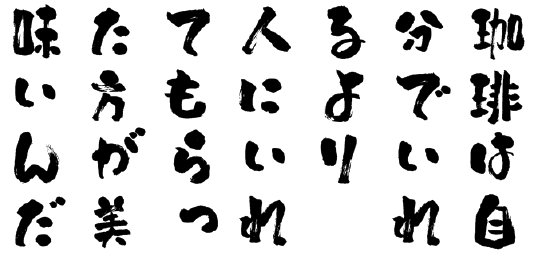 珈琲は自
分でいれ
るより
人にいれ
てもらっ
た方が美
味いんだ